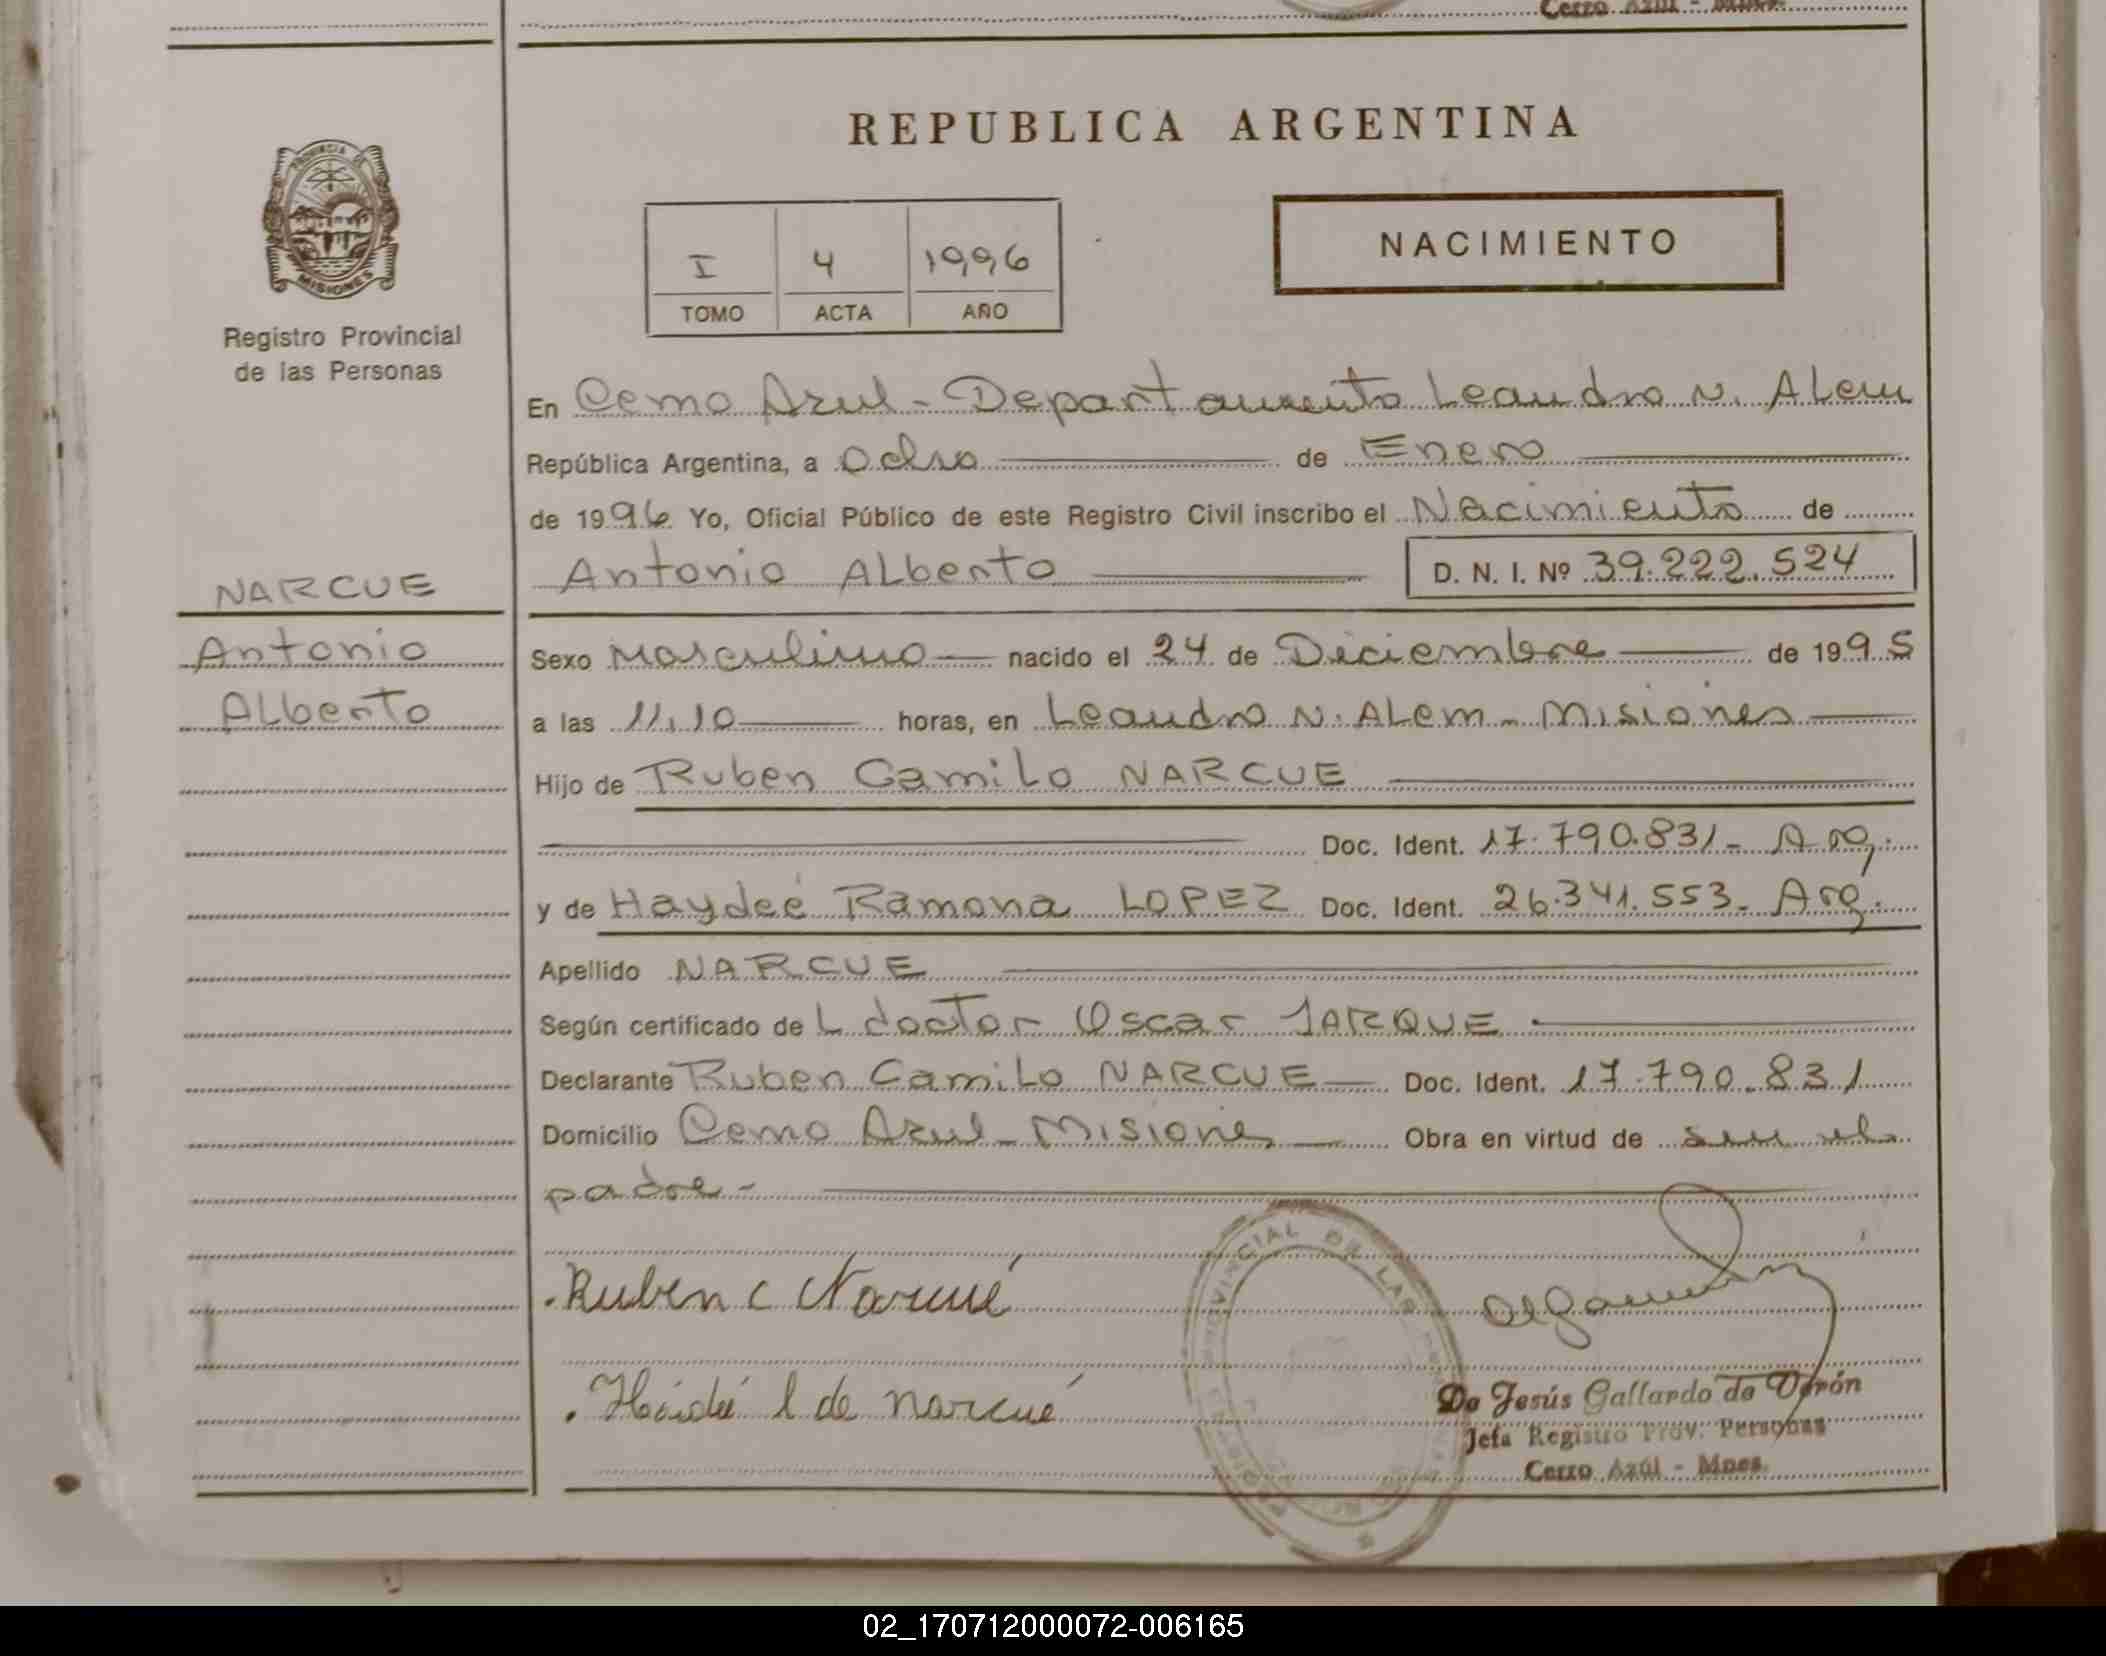 Cerro Azúl - Mnes.
PROVINCIA DE
MISIONES
Registro Provincial
de las Personas
REPUBLICA ARGENTINA
I 4 1996
TOMO ACTA AÑO
NACIMIENTO
En Cerro Azul - Departamento Leandro N. Alem
República Argentina, a Ocho de Enero
de 1996 Yo, Oficial Público de este Registro Civil inscribo el Nacimiento de
NARCUE
Antonio Alberto D. N. I. Nº 39.222.524
Antonio
Sexo Masculino nacido el 24 de Diciembre de 1995
Alberto
a las 11.10 horas, en Leandro N. Alem - Misiones
Hijo de Ruben Camilo NARCUE
Doc. Ident. 17.790.831 - Arg.
y de Haydeé Ramona LOPEZ Doc. Ident. 26.341.553 - Arg.
Apellido NARCUE
Según certificado de L doctor Oscar JARQUE
Declarante Ruben Camilo NARCUE Doc. Ident. 17.790.831
Domicilio Cerro Azul - Misiones Obra en virtud de ser el
padre -
Ruben C Narcué
Haidé l de narcué
PROVINCIAL DE LAS
De Jesús Gallardo de Verón
Jefa Registro Prov. Personas
Cerro Azúl - Mnes.
02_170712000072-006165